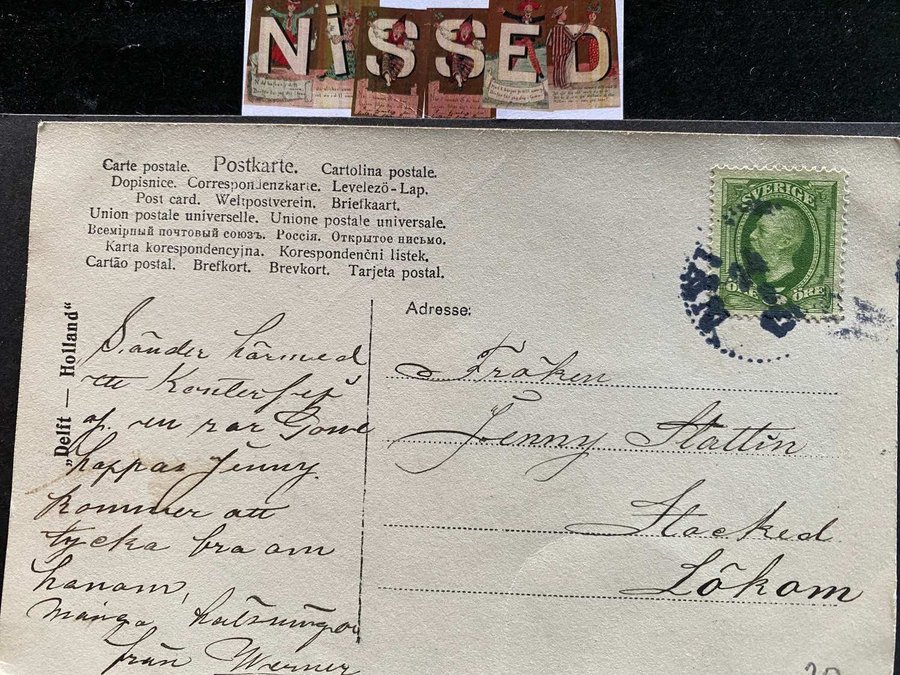 NISSED
Carte postale. Postkarte. Cartolina postale.
Dopisnice. Correspondenzkarte. Levelező-Lap.
Post card. Weltpostverein. Briefkaart.
Union postale universelle. Unione postale universale.
Всемірный почтовый союзъ. Россія. Открытое письмо.
Karta korespondencyjna. Korespondenčni listek.
Cartão postal. Brefkort. Brevkort. Tarjeta postal.
SVERIGE
ÖRE ÖRE
"Delft — Holland"
Adresse:
Sänder härmed
ett Konterfej
af en rar
hoppas Jenny
kommer att
tycka bra om
honom,
många hälsningar
från Werner
Fröken
Jenny Stattin
Stocked
Lökom